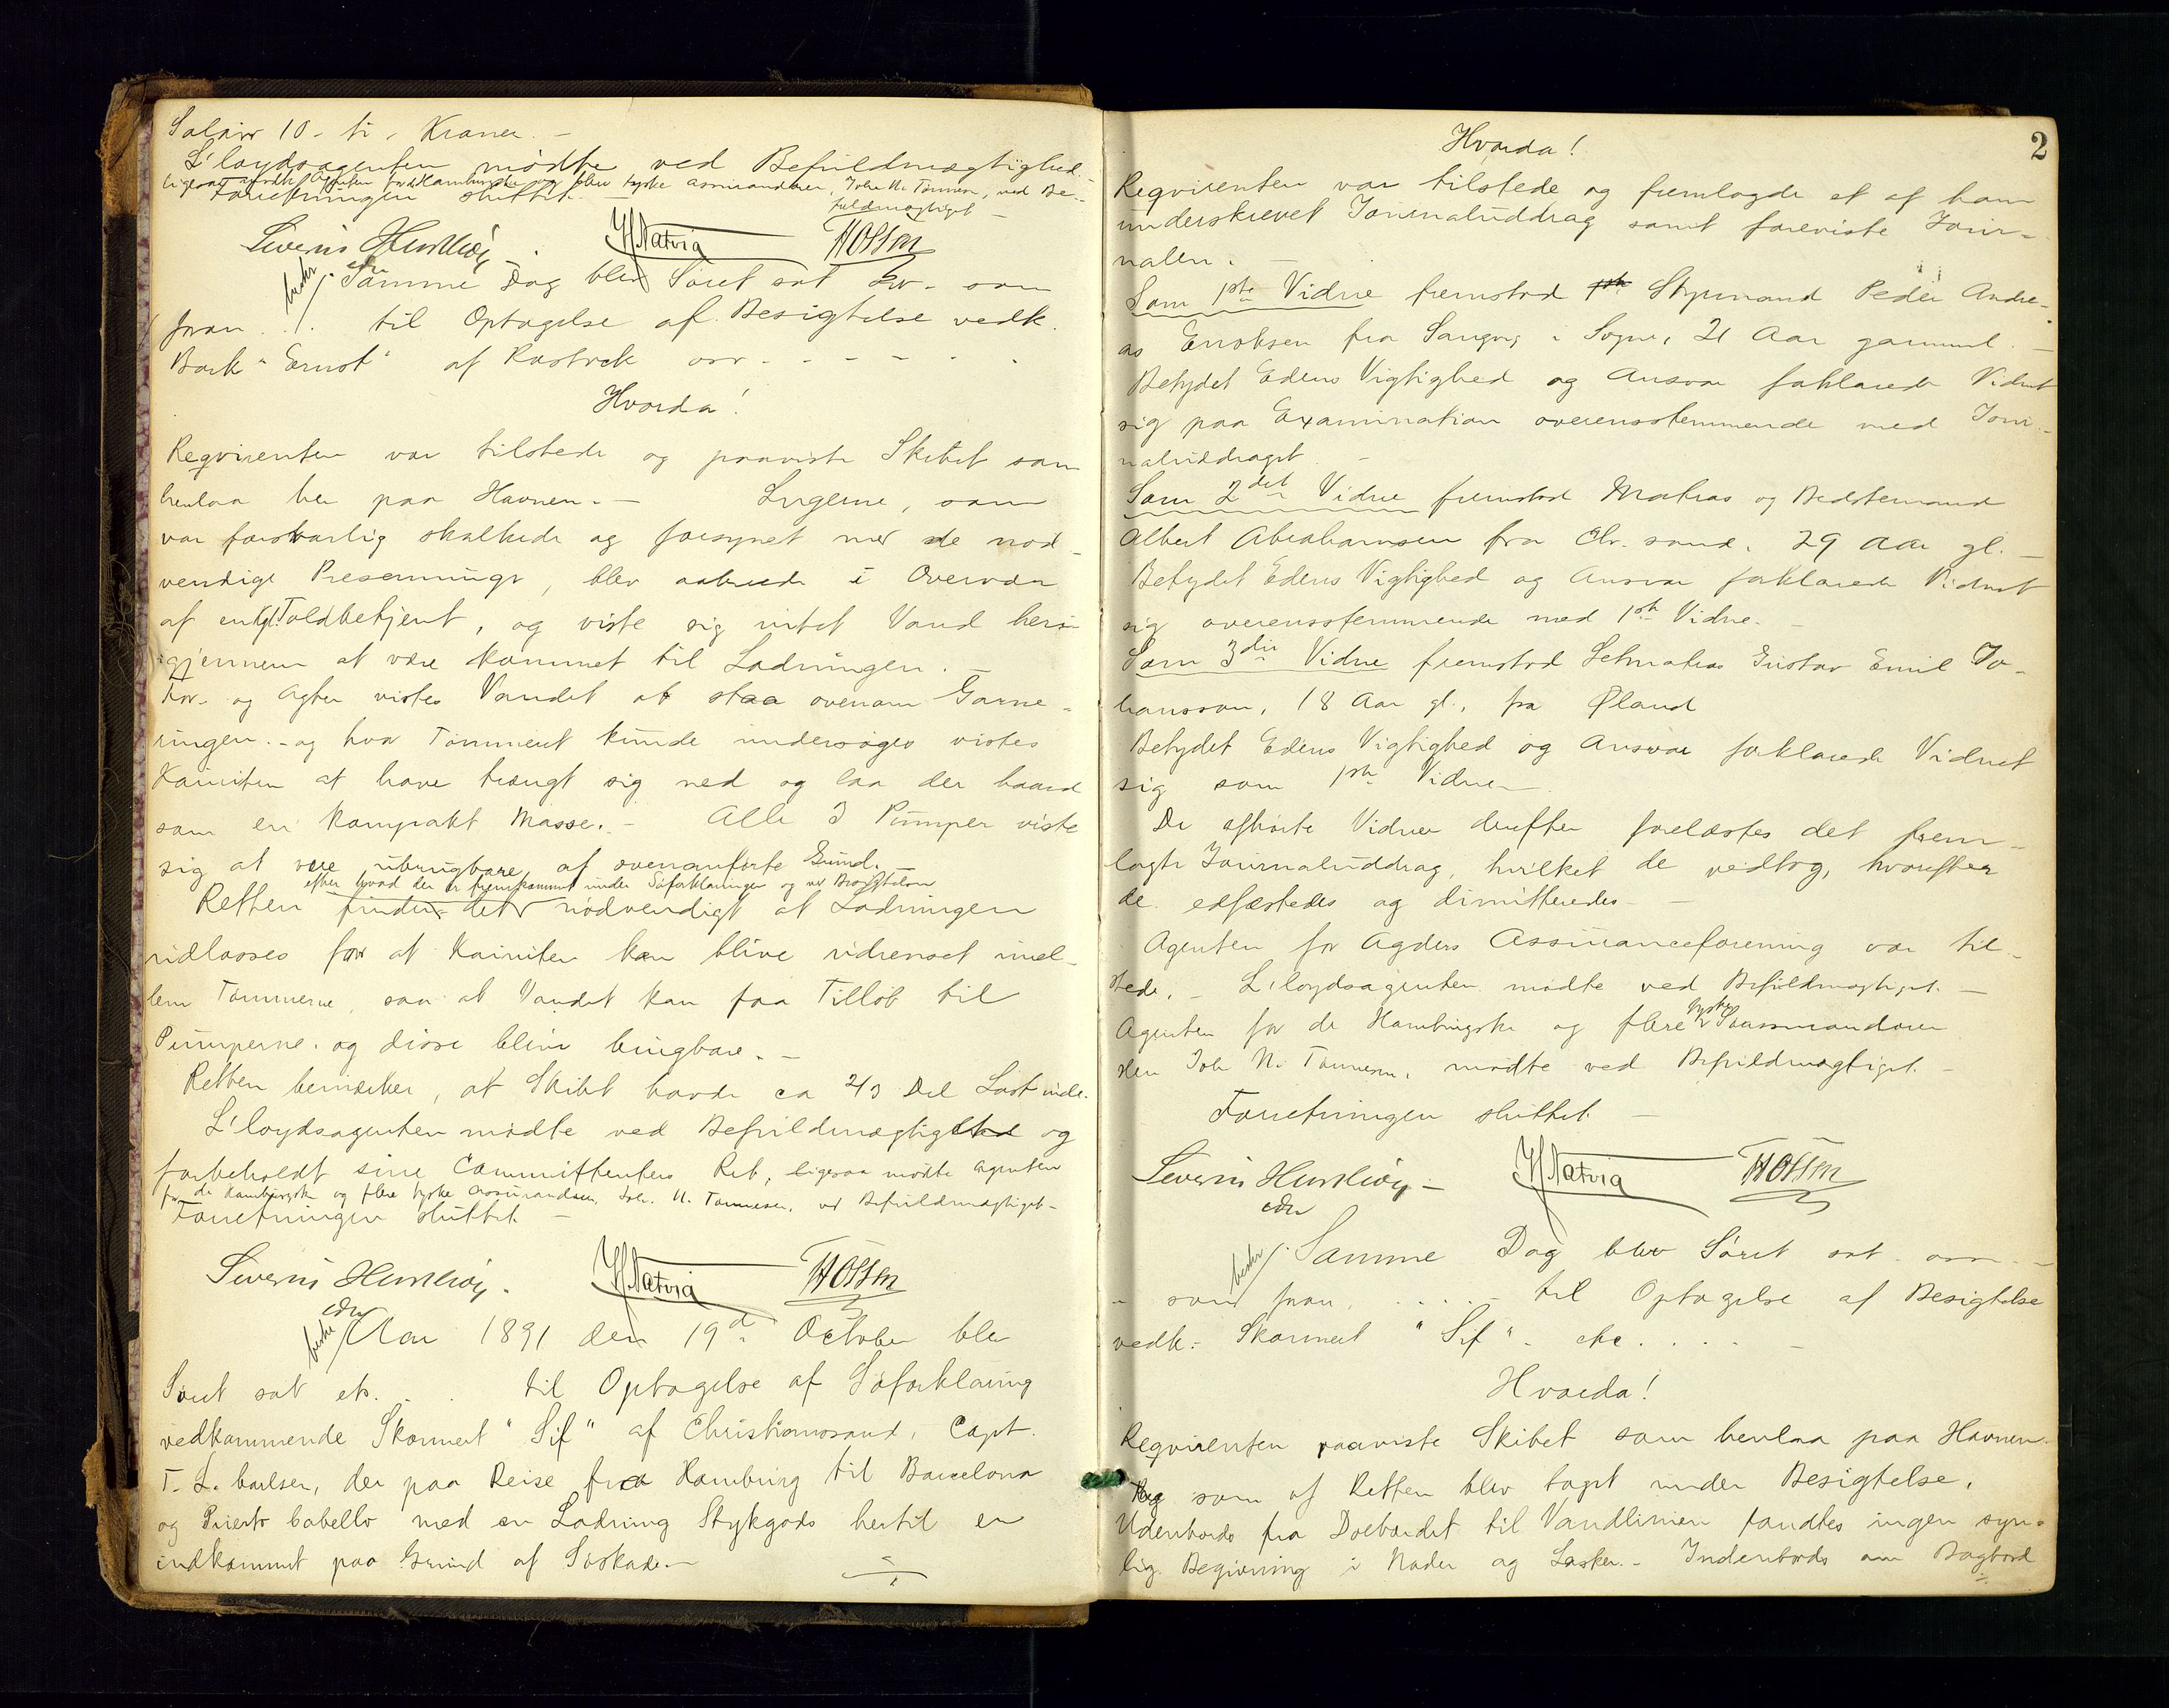 Salair 10 - ti - Kroner. -
L'loydsagenten mødte ved Befuldmægtighed.
ligesaa mødte Agenten for Hamburgske og flere tyske assurandører, Joh. N. Tønnesen, ved Be-
fuldmægtiget -
Forretningen sluttet. -
Severin Hurslwig. HNatvig THOlsen
beskr
Samme Dag blev Søret sat Ew. som
foran ./. til Optagelse af Besigtelse vedk.
Bark "Ernst" af Rostock osv. - - - -
Hvorda!
Reqvirenten var tilstede og paaviste Skibet som
henlaa her paa Havnen. - Lugerne, som
var forsvarlig skalkede og forsynet med de nød-
vendige Presenninger, blev aabnede i Overvær
af en Toldbetjent, og viste sig intet Vand heri-
gjennem at være kommet til Ladningen. -
For- og Agter vistes Vandet at staa ovenom Garne-
ringen. - og hvor Tømmeret kunde undersøges vistes
Kainiten at have trængt sig ned og laa der haard
som en kompakt Masse. - Alle 3 Pumper viste
sig at være ubrugbare af ovenanførte Grund. -
efter hvad der er fremkommet under Søforklaringen og ved Besigtelsen
Retten finder det nødvendigt at Ladningen
udlosses for at Kainiten kan blive udrenset mel-
lem Tømmerne, saa at Vandet kan faa Tilløb til
Pumperne. og disse blive brugbare. -
Retten bemærker, at Skibet havde ca 2/3 Del Last inde.
L'loydsagenten mødte ved Befuldmægtighed og
forbeholdt sine Committenters Ret, ligesaa mødte Agenten
for de Hamburgske og flere tyske Assurandører, Joh. N. Tønnesen, ved Befuldmægtiget -
Forretningen sluttet. -
Severin Hurslwig. HNatvig THOlsen
beskr
Aar 1891 den 19d October blev
Søret sat etc. . . til Optagelse af Søforklaring
vedkommende Skonnert "Sif" af Christianssand, Capt.
T. L. Carlsen, der paa Reise fra Hamburg til Barcelona
og Puerto Cabello med en Ladning Stykgods hertil er
indkommet paa Grund af Søskade. -
2
Hvorda!
Reqvirenten var tilstede og fremlagde et af ham
underskrevet Journaluddrag samt foreviste Jour-
nalen. -
Som 1ste Vidne fremstod Styrmand Peder Andre-
as Eriksen fra Langvig i Sogne, 21 Aar gammel. -
Betydet Edens Vigtighed og Ansvar forklarede Vidnet
sig paa Examination overensstemmende med Jour-
naluddraget. -
Som 2det Vidne fremstod Matros og Bedstemand
Albert Abrahamsen fra Chr.sand, 29 Aar gl. -
Betydet Edens Vigtighed og Ansvar forklarede Vidnet
sig overensstemmende med 1ste Vidne. -
Som 3die Vidne fremstod Letmatros Gustav Emil Jo-
hansson, 18 Aar gl., fra Øland
Betydet Edens Vigtighed og Ansvar forklarede Vidnet
sig som 1ste Vidne -
De afhørte Vidner derefter forelæstes det frem-
lagte Journaluddrag, hvilket de vedtog, hvorefter
de edfæstedes og dimitteredes -
Agenten for Agders Assuranceforening var til-
stede. - L'loydsagenten mødte ved Befuldmægtiget. -
Agenten for de Hamburgske og flere tyske Søassurandører
Herr Joh N. Tønnesen, mødte ved Befuldmægtiget. -
Forretningen sluttet. -
Severin Hurslwig - HNatvig THOlsen
beskr
Samme Dag blev Søret sat osv. -
- som foran . . . . . - til Optagelse af Besigtelse
vedk. Skonnert "Sif" - etc. . . . -
Hvorda!
Reqvirenten paaviste Skibet som henlaa paa Havnen.
og som af Retten blev tagt under Besigtelse.
Udenbords fra Dolbordet til Vandlinien fandtes ingen syn-
lig Begivning i Nader og Lasker. - Indenbords om Bagbord